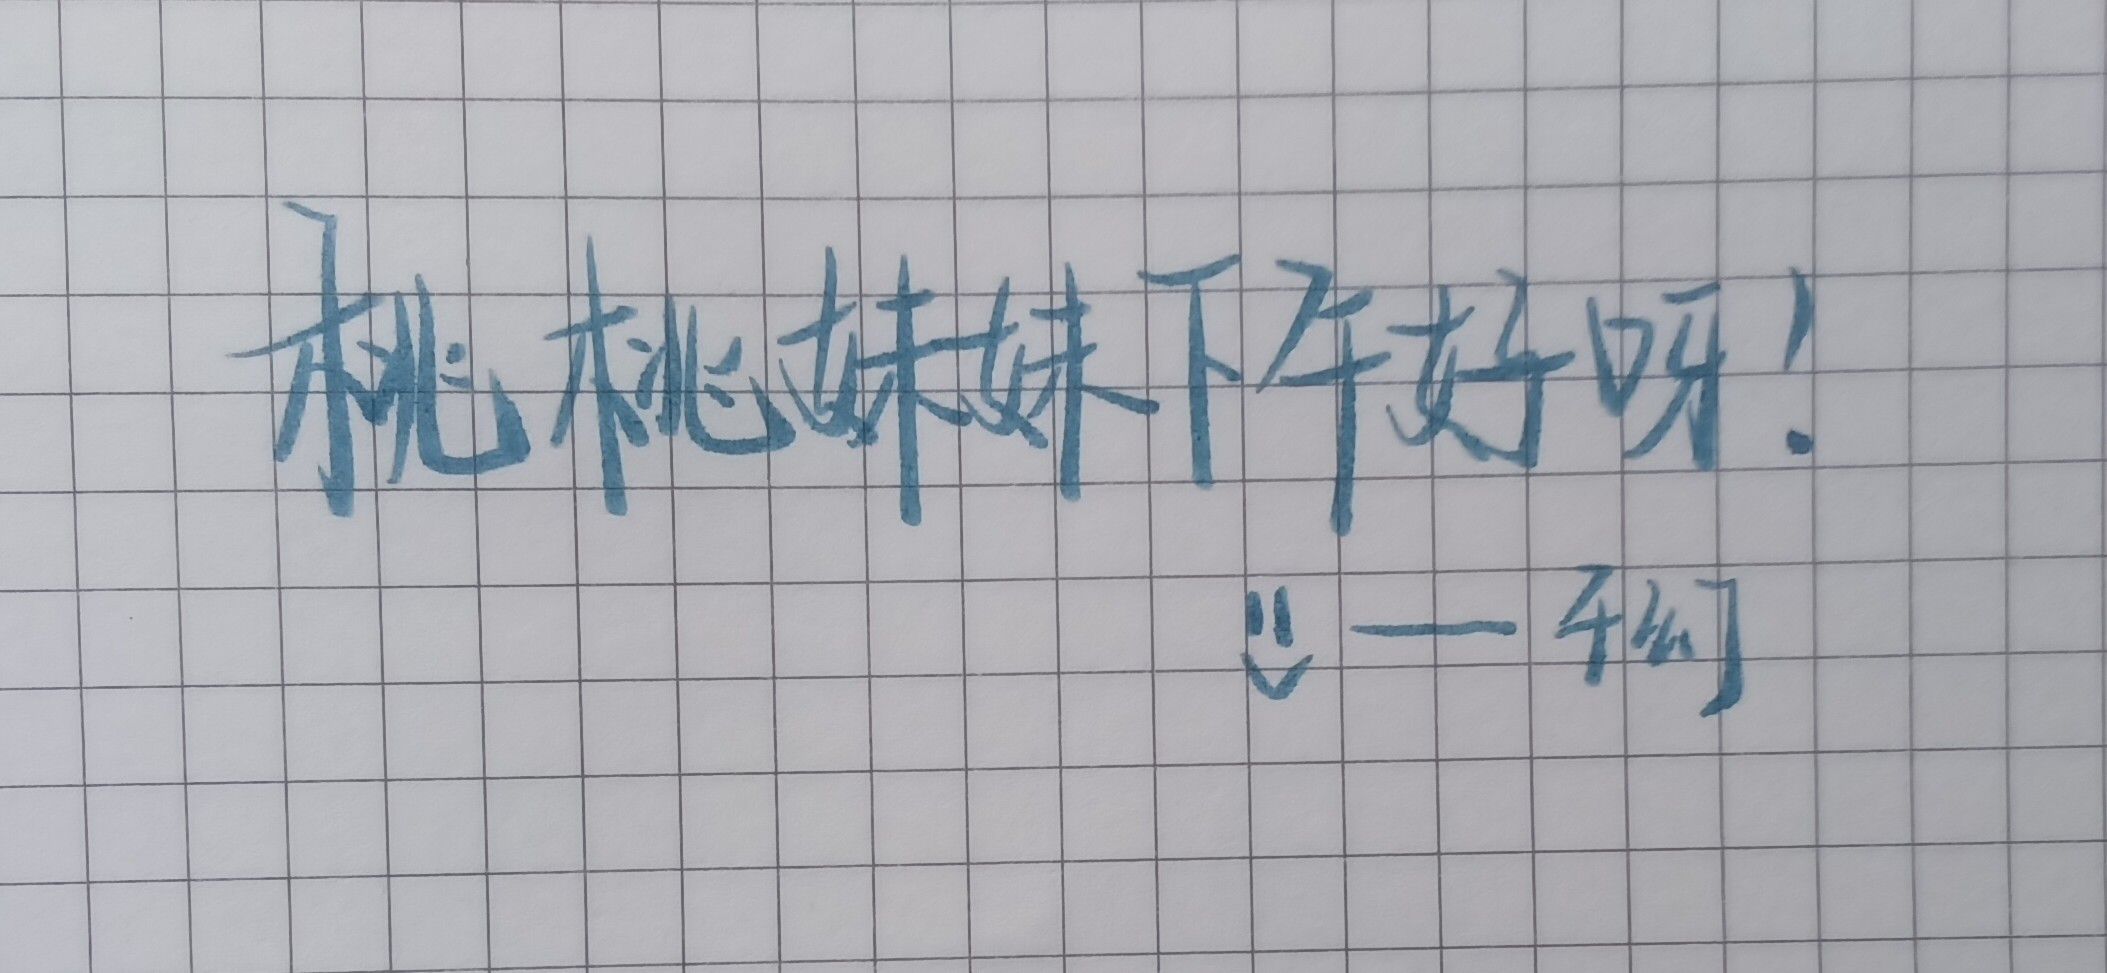 桃桃妹妹下午好呀！